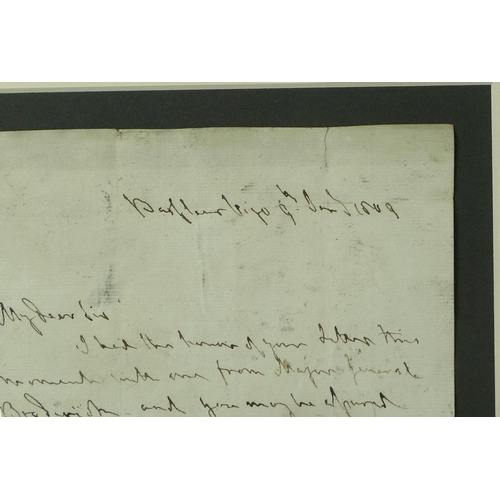 Barfleur Vigo 9th Jany 1809
My Dear Sir
I had the honor of your Letter this
moment with one from Major General
and you may be assured